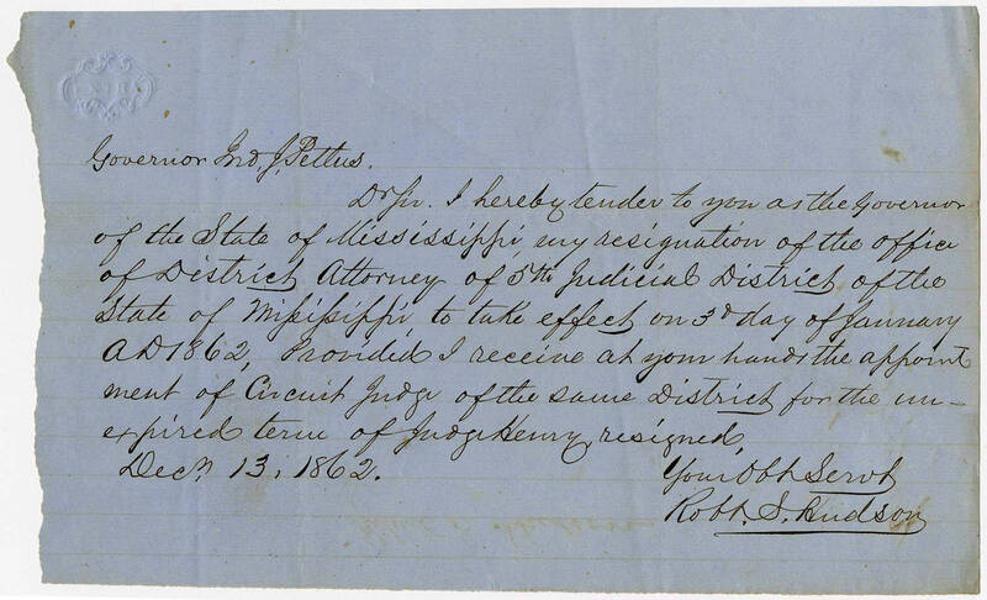 Governor Jno. J. Pettus.
Dr Sir. I hereby tender to you as the Governor
of the State of Mississippi, my resignation of the office
of District Attorney of 5th Judicial District of the
State of Mississippi, to take effect on 3d day of January
AD 1862, Provided I receive at your hands the appoint
ment of Circuit Judge of the same District for the un-
expired term of Judge Henry, resigned,
Decr 13, 1862.
Your Obt Servt
Robt. S. Hudson